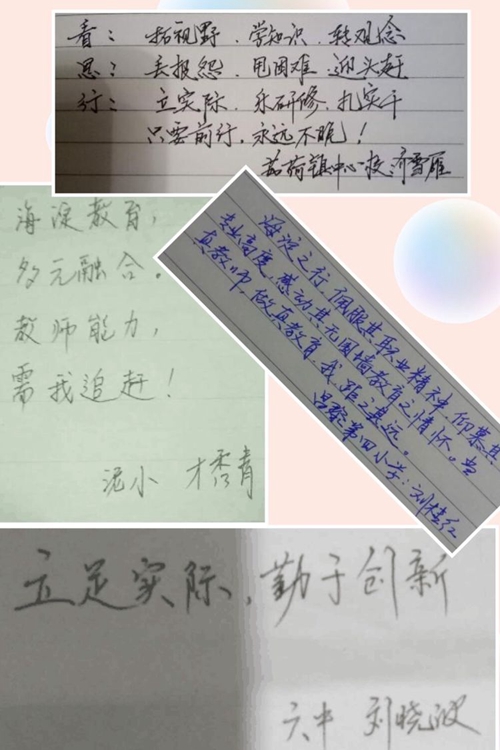 看：拓视野、学知识、转观念
思：丢报怨、甩困难、迎头赶
行：立实际、永研修、扎实干
只要前行，永远不晚！
茹荷镇中心校 雪雁
海淀教育，
多元融合。
教师能力，
需我追赶！
泥小 才秀青
海淀之行，佩服其职业精神，仰慕其
专业高度，感动其无围墙教育之情怀。当
真教师，做真教育，我距之甚远。
昌黎第四小学：刘桂红
立足实际，勤于创新
六中 刘晓波